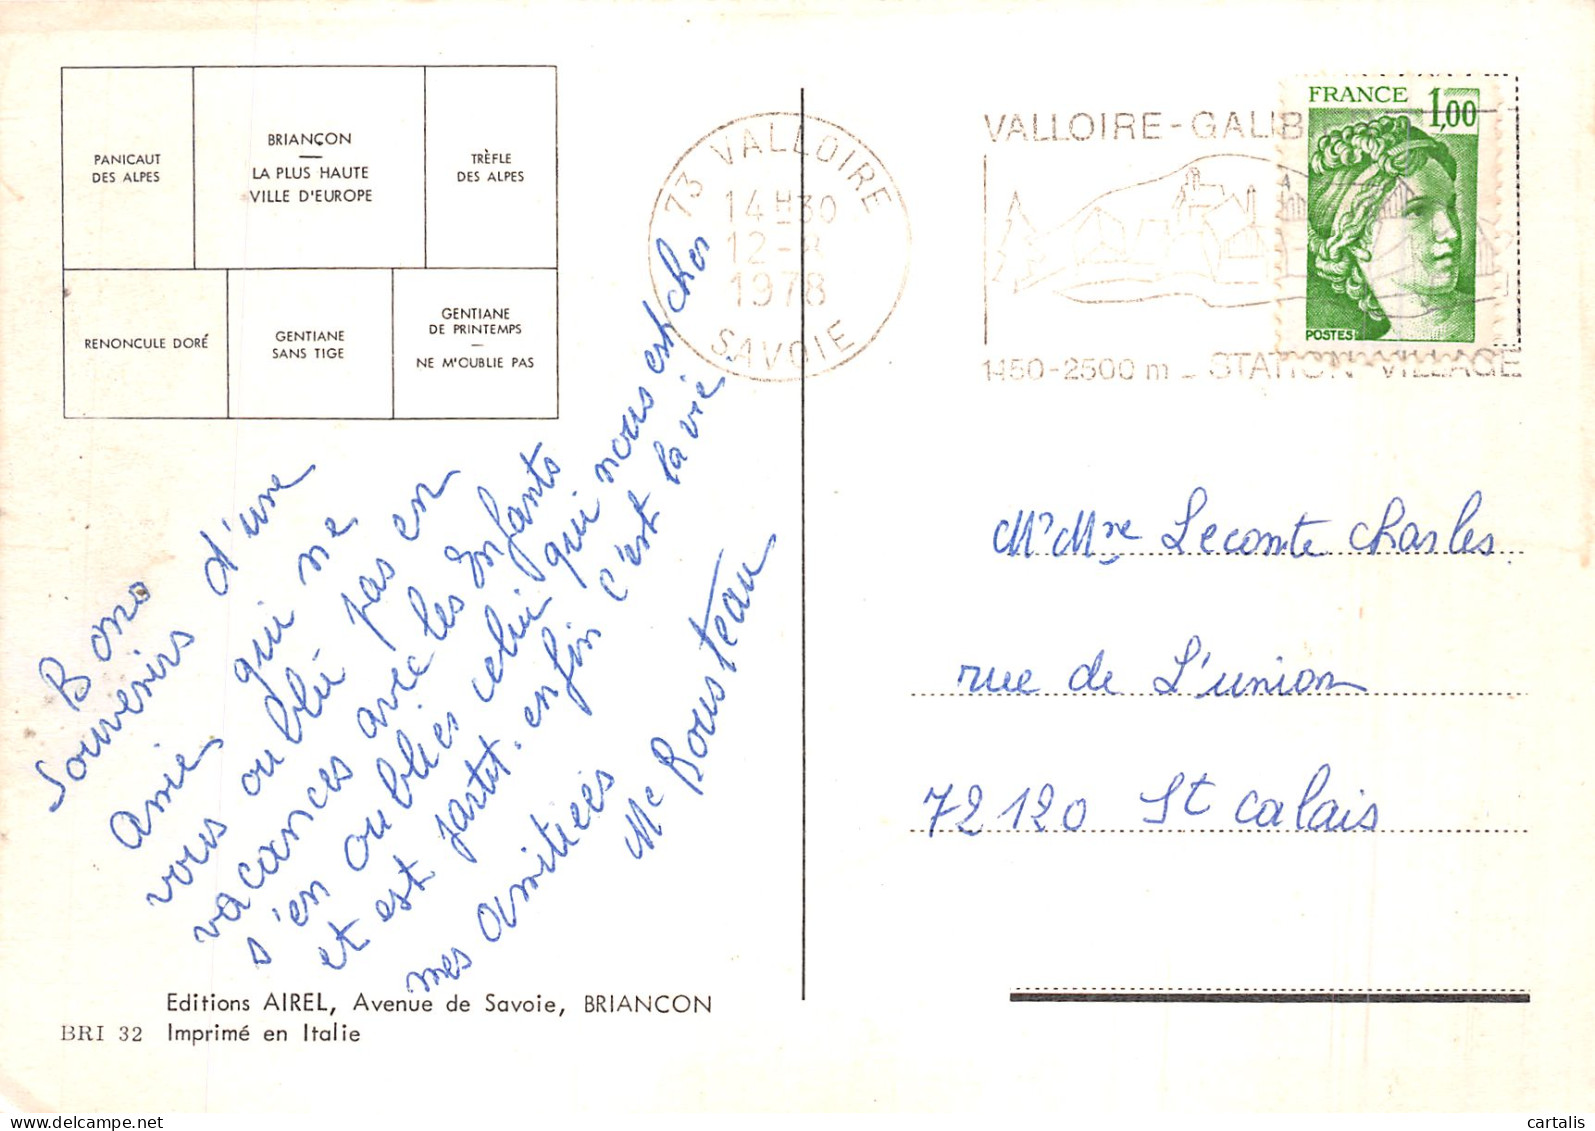 PANICAUT
DES ALPES
BRIANÇON
LA PLUS HAUTE
VILLE D'EUROPE
TRÈFLE
DES ALPES
RENONCULE DORÉ
GENTIANE
SANS TIGE
GENTIANE
DE PRINTEMPS
NE M'OUBLIE PAS
73 VALLOIRE
14H30
12-
1978
SAVOIE
VALLOIRE-GALIB
1450-2500 m - STATION VILLAGE
FRANCE 1,00
POSTES
Bons
Souvenirs d'une
amie qui ne
vous oublie pas en
vacances avec les Enfants
s'en oublies celui qui nous est cher
et est partit. enfin c'est la vie.
mes amitiées
Me Bousteau
Mr Mme Lecomte charles
rue de L'union
72120 St calais
Editions AIREL, Avenue de Savoie, BRIANCON
BRI 32 Imprimé en Italie
cartalis